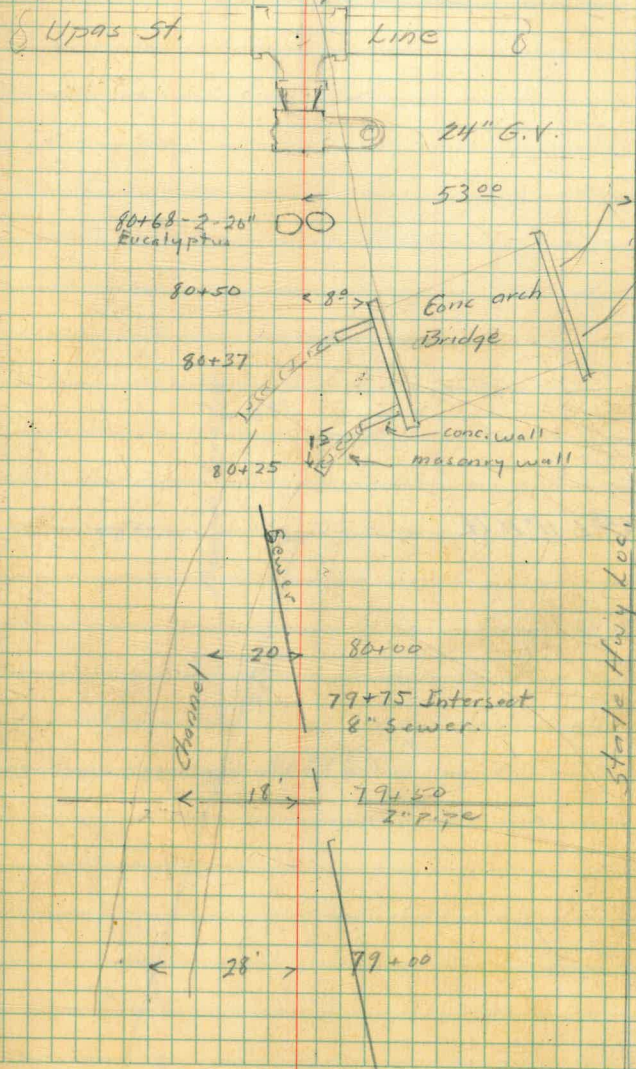 Upas St. Line
24" G.V.
53 00
80+68-2-20"
Eucalyptus
80+50
8°
Conc arch
Bridge
80+37
conc. wall
15
masonry wall
80+25
Sewer
State Hwy Loc.
20
80+00
79+75 Intersect
8" Sewer.
Channel
18'
79+50
2" pipe
28'
79+00